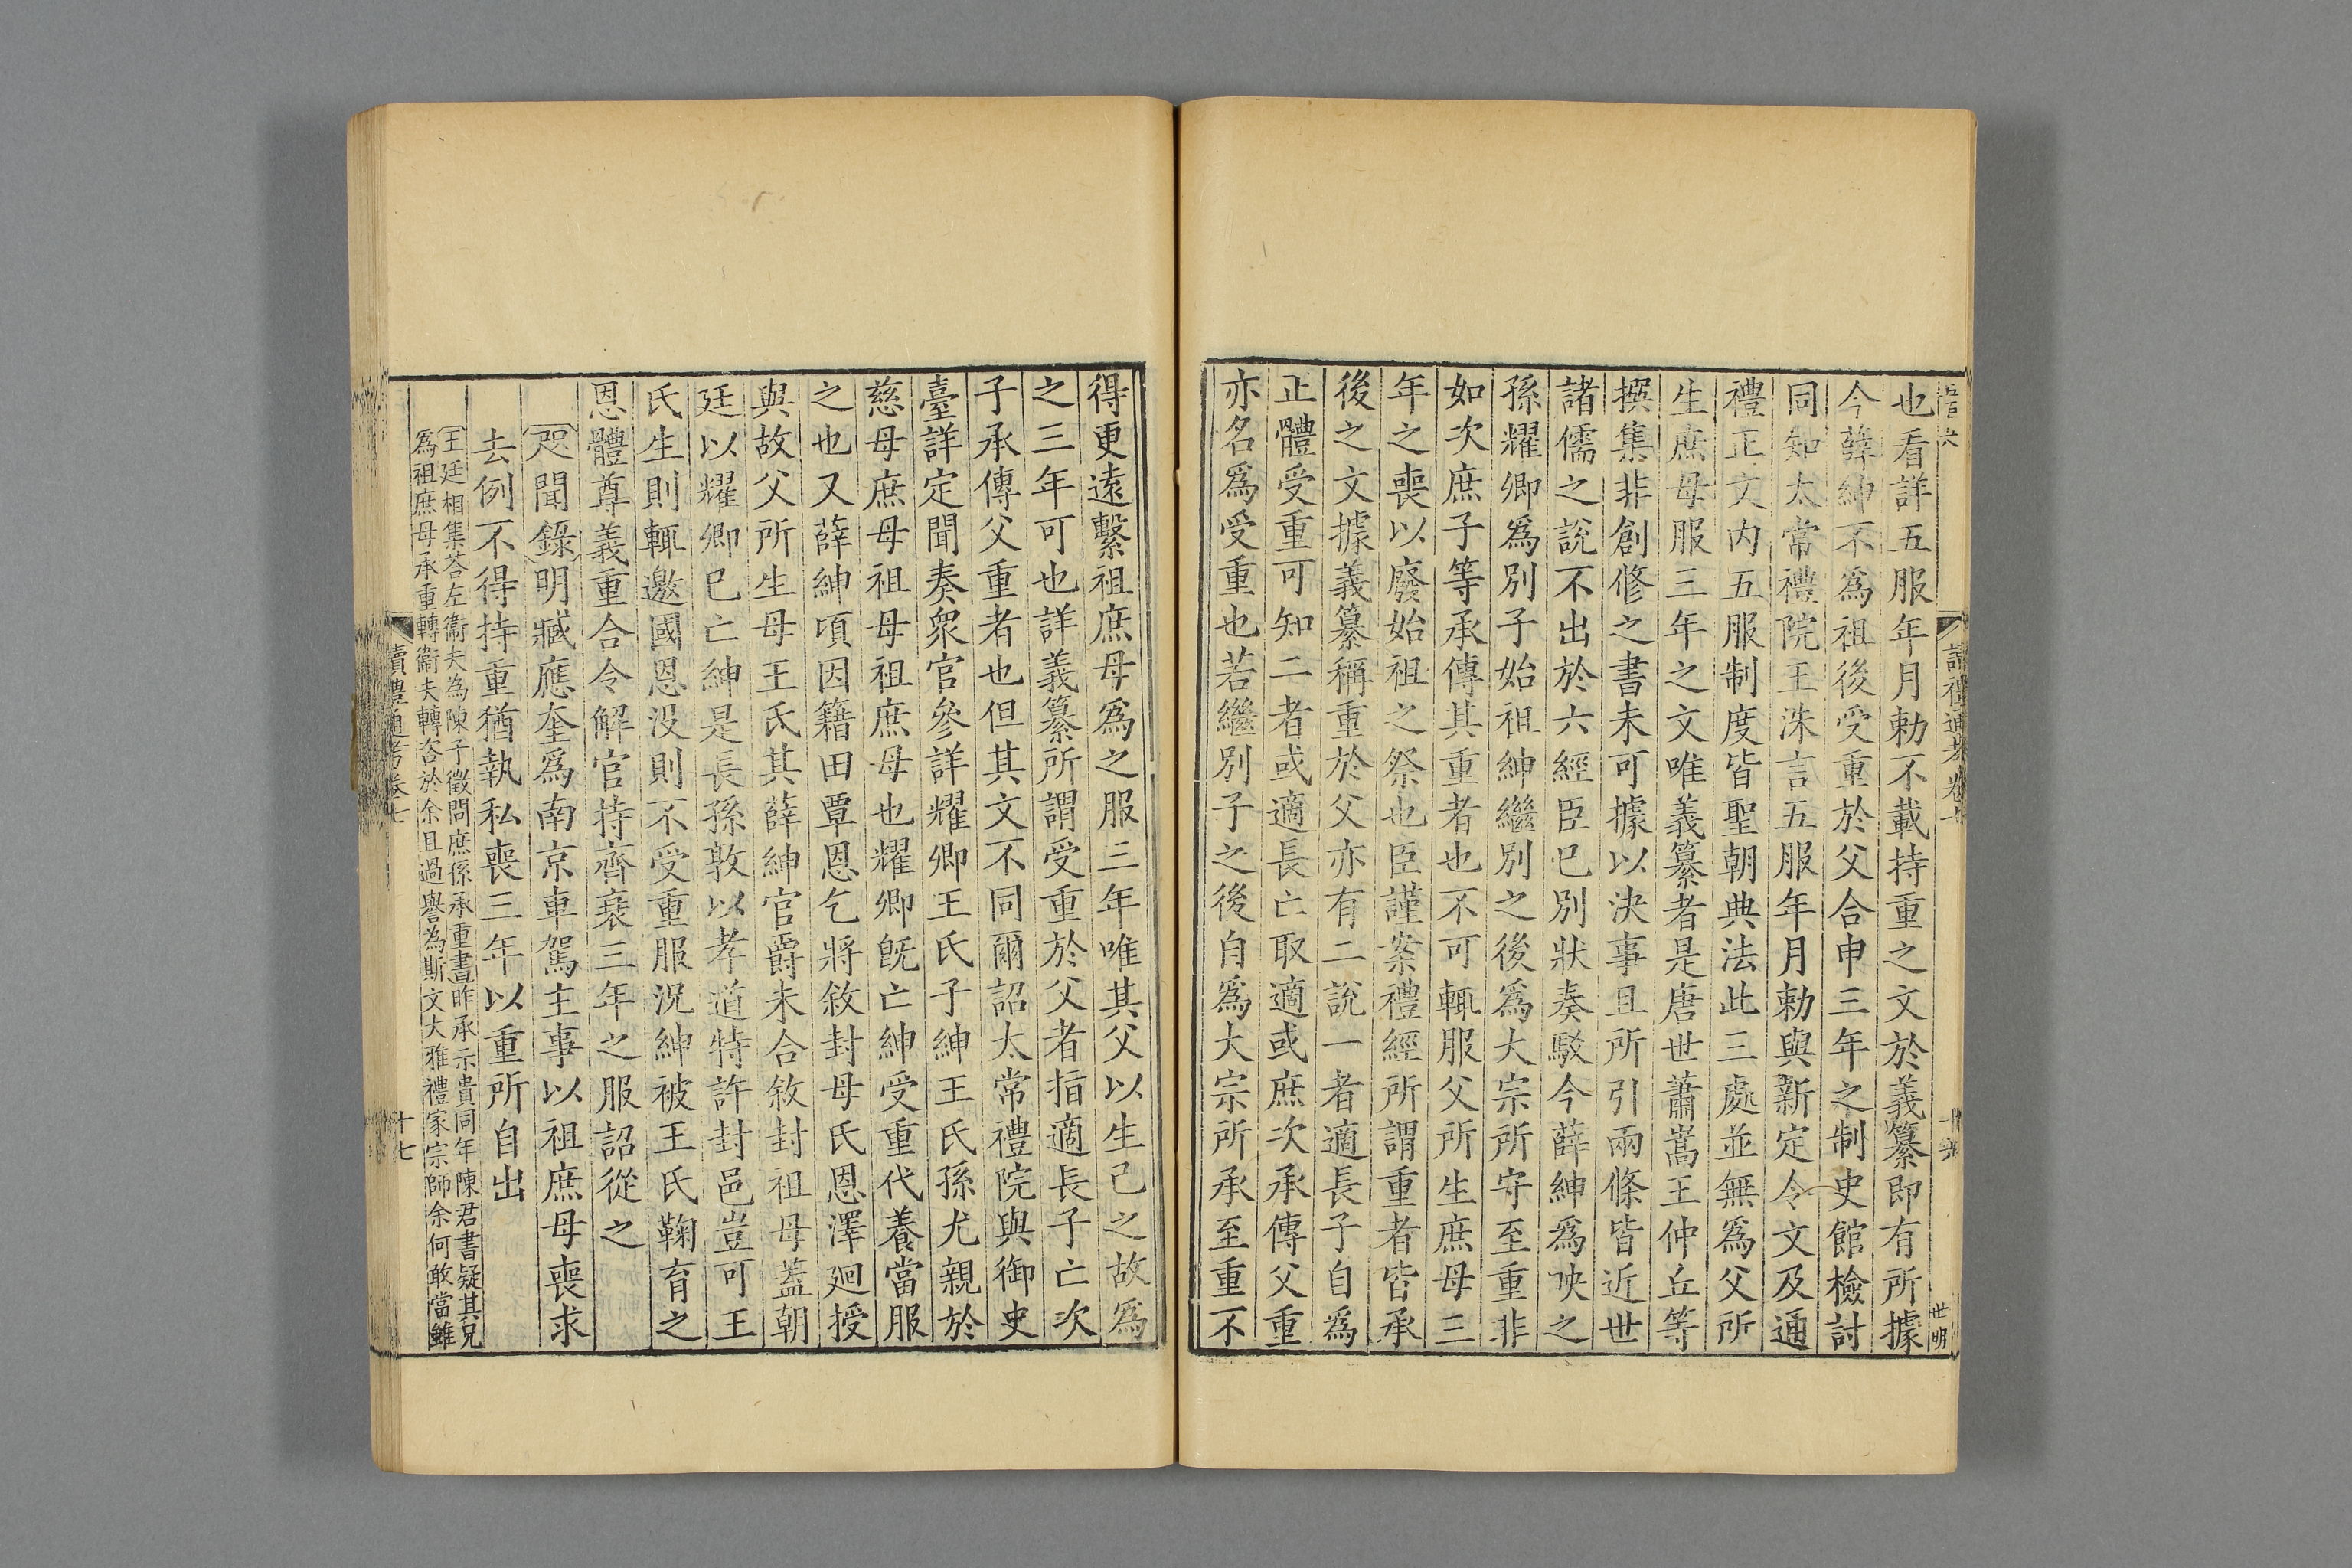 也看詳五服年月勅不載持重之文於義纂即有所據
今薛紳不爲祖後受重於父合申三年之制史館檢討
同知太常禮院王洙言五服年月勅與新定令文及通
禮正文内五服制度皆聖朝典法此三處並無爲父所
生庶母服三年之文唯義纂者是唐世蕭嵩王仲丘等
撰集非創修之書未可據以決事且所引兩條皆近世
諸儒之說不出於六經臣已別狀奏駁今薛紳爲映之
孫耀卿爲別子始祖紳繼別之後爲大宗所守至重非
如次庶子等承傳其重者也不可輒服父所生庶母三
年之喪以廢始祖之祭也臣謹案禮經所謂重者皆承
後之文據義纂稱重於父亦有二說一者適長子自爲
正體受重可知二者或適長亡取適或庶次承傳父重
亦名爲受重也若繼別子之後自爲大宗所承至重不
得更遠繫祖庶母爲之服三年唯其父以生己之故爲
之三年可也詳義纂所謂受重於父者指適長子亡次
子承傳父重者也但其文不同爾詔太常禮院與御史
臺詳定聞奏衆官參詳耀卿王氏子紳王氏孫尤親於
慈母庶母祖母祖庶母也耀卿旣亡紳受重代養當服
之也又薛紳頃因籍田覃恩乞將敘封母氏恩澤廻授
與故父所生母王氏其薛紳官爵未合敘封祖母蓋朝
廷以耀卿已亡紳是長孫敦以孝道特許封邑豈可王
氏生則輒邀國恩没則不受重服況紳被王氏鞠育之
恩體尊義重合令解官持齊衰三年之服詔從之
咫聞錄明臧應奎爲南京車駕主事以祖庶母喪求
去例不得持重猶執私喪三年以重所自出
王廷相集荅左衞夫為陳子徵問庶孫承重書昨承示貴同年陳君書疑其兄
為祖庶母承重轉衞夫轉咨於余且過譽為斯文大雅禮家宗師余何敢當雖
讀禮通考卷七
十七
世明